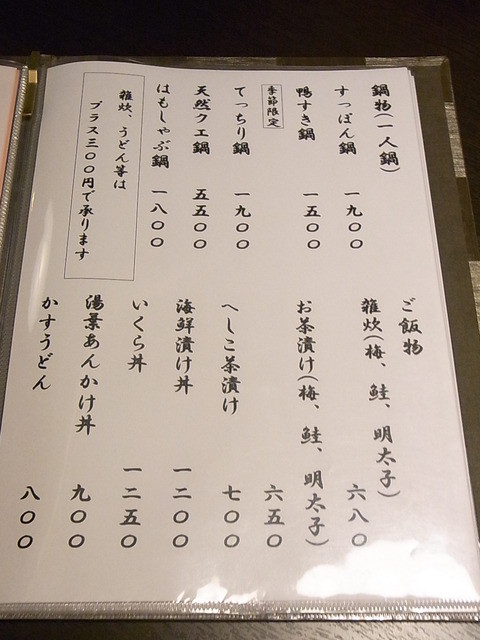 鍋物(一人鍋)
すっぽん鍋 一九〇〇
鴨すき鍋 一五〇〇
季節限定
てっちり鍋 一九〇〇
天然クエ鍋 五五〇〇
はもしゃぶ鍋 一八〇〇
雑炊、うどん等は
プラス三〇〇円で承ります
ご飯物
雑炊(梅、鮭、明太子) 六八〇
お茶漬け(梅、鮭、明太子) 六五〇
へしこ茶漬け 七〇〇
海鮮漬け丼 一二〇〇
いくら丼 一二五〇
湯葉あんかけ丼 九〇〇
かすうどん 八〇〇